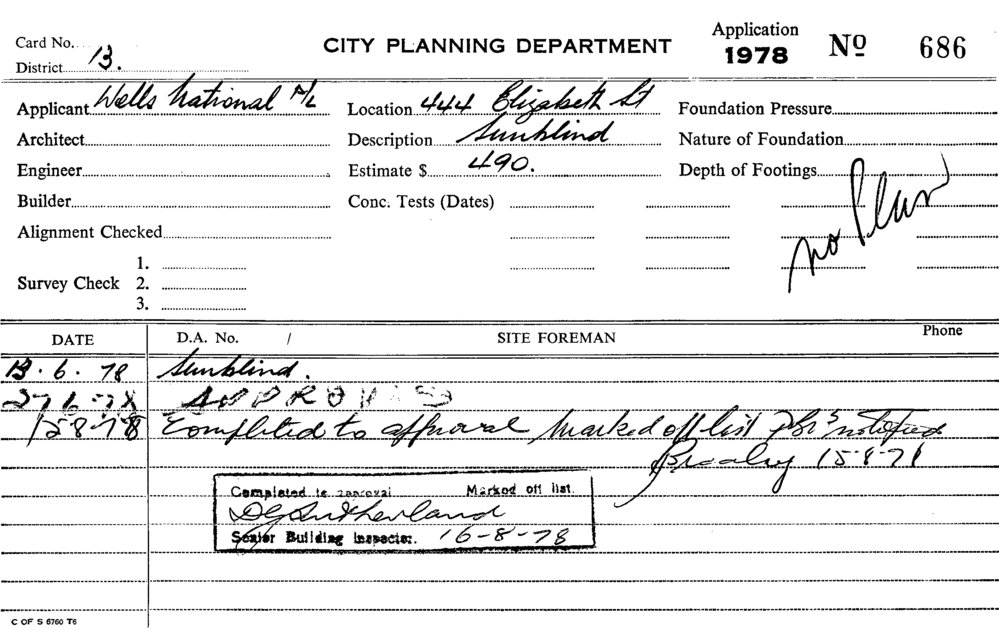 Card No. CITY PLANNING DEPARTMENT Application 1978 Nº 686
District 13.
Applicant Wells National P/L Location 444 Elizabeth St Foundation Pressure
Architect Description Sunblind Nature of Foundation
Engineer Estimate $ 490. Depth of Footings
Builder Conc. Tests (Dates) no Plan
Alignment Checked
1.
Survey Check 2.
3.
DATE D.A. No. / SITE FOREMAN Phone
13.6.78 Sunblind.
27.6.78 APPROVED
15.8.78 Completed to approval Marked off list notified
15.8.78
Completed to approval Marked off list.
DG Sutherland
Senior Building Inspector. 16-8-78
C OF S 6760 T6